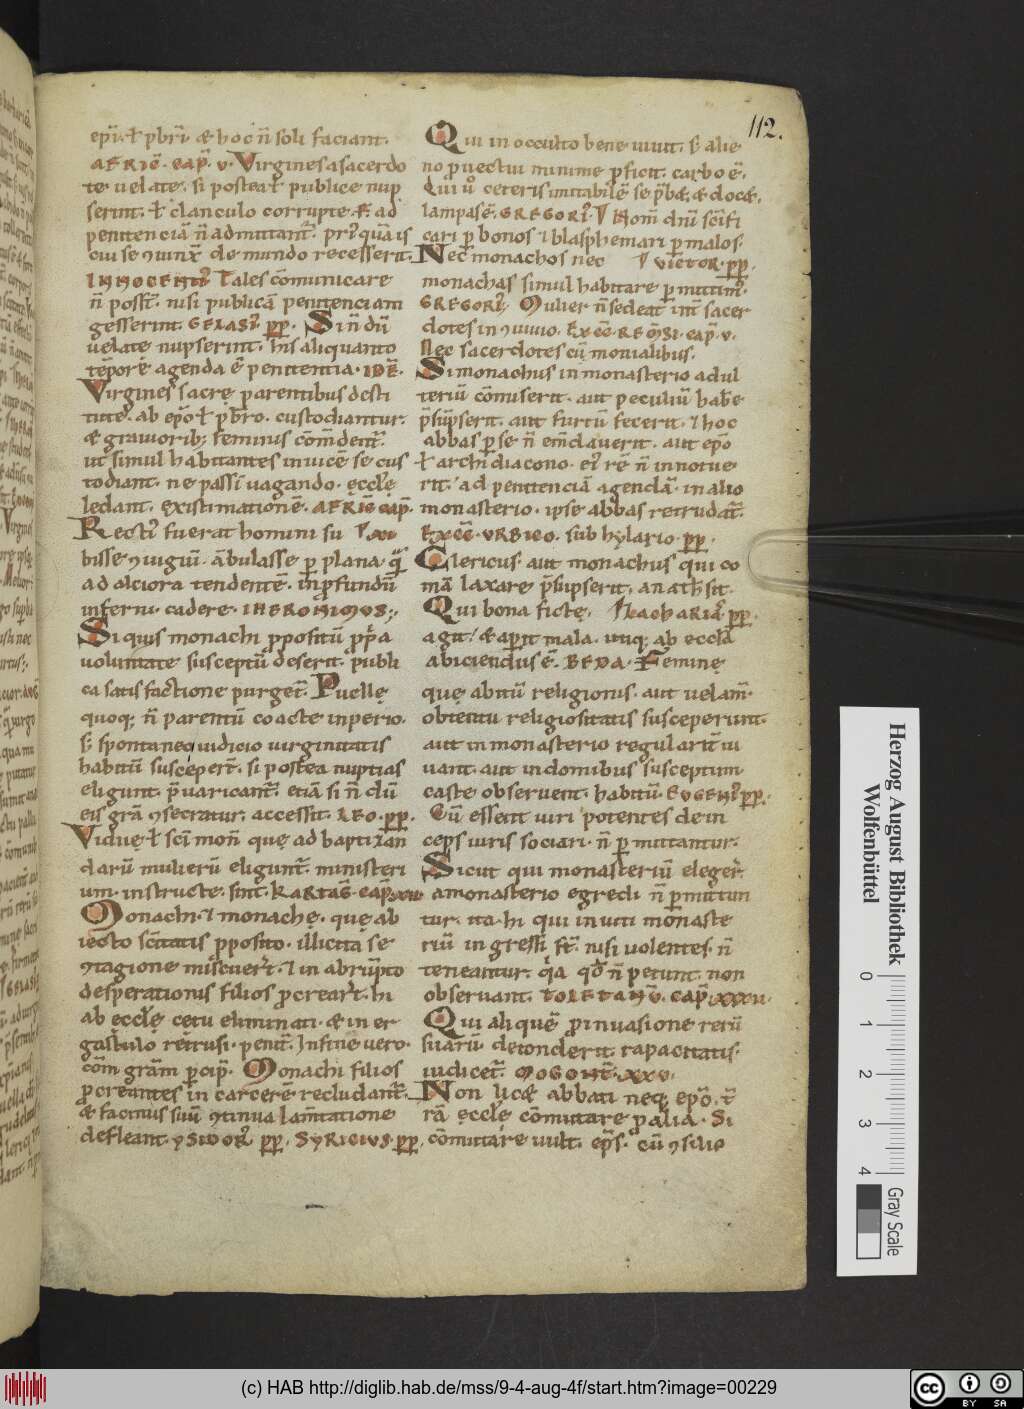 112.
epi᷑. ł pbr̄i. & hoc n̄ soli faciant.
AFRIC̄. CAP̄. V. Virgines a sacerdo
te uelate. si postea ł publice nup
serint. ł clanculo corrupte. & ad
penitenciā n̄ admittant᷑. pri᷒quā is
cui se ꝯiunx̄ de mundo recesserit.
INNOCENTI᷒ Tales cōmunicare
n̄ posst̄. nisi publicā penitenciam
gesserint. GELASI᷒ PP̄. Si n̄ dū
uelate nupserint. his aliquanto
tēpore agenda ē penitentia. IDĒ.
Virgines sacrę parentibus desti
tute. ab epō ł pb̄ro. custodiantur.
& grauiorib; feminis cōm̄dent᷑.
ut simul habitantes inuicē se cus
todiant. ne passī uagando. ęcclę
ledant. existimationē. AFRIC̄ CAP̄.
Recti᷒ fuerat homini su
bisse ꝯiugiū. ābulasse ꝑ plana. q̄
ad alciora tendentē. in ꝓfundū
inferni. cadere. IHERONIMUS:;
Si quis monachi ꝓpositū ꝓp̄a
uoluntate susceptū deserit. publi
ca satisfactione purget᷑. Puellę
quoq; n̄ parentū coacte inperio.
s; spontaneo iudicio uirginitatis
habitū susceper̄t. si postea nuptias
eligunt. p̄uaricant᷑. etiā si n̄ dū
eis grā ꝯsecratur. accessit. LEO. PP̄.
Viduę ł sc̄i mon̄ quę ad baptizan
darū mulierū eligunt᷑. ministeri
um. instructe. sint. KARTAḠ. CAP̄. XII
Monachi. ⁊ monachę. quę ab
iecto sc̄itatis ꝓposito. illicita se
ꝯtagione miscuer̄t. ⁊ in abrūpto
desperationis filios ꝓcrear̄t. hi
ab ęcclę cetu eliminati. & in er
gastulo retrusi. penit̄. In fine uero.
cōm grām ꝑcip̄. Monachi filios
ꝓcreantes in carcerē recludant᷑.
& facinus suū ꝯtinua lam̄tatione
defleant. YSIDOR᷒ PP̄. SYRICIUS. PP̄.
Qui in occulto bene uiuit. s; alie
no ꝓuectui minime ꝓficit. carbo ē.
Qui u᷒ ceteris imitabilē se p̄b&. & doc&.
lampas ē. GREGORI᷒ Nom̄ dn̄i sc̄ifi
cari ꝑ bonos ⁊ blasphemari ꝑ malos.
Nec monachos nec VICTOR. PP̄.
monachas simul habitare ꝑmittim᷒.
GREGORI᷒ Mulier n̄ sedeat int̄ sacer
dotes in ꝯuiuio. EXC̄C̄. REM̄SI. CAP̄. V.
Nec sacerdotes cū monialibus.
Si monachus in monasterio adul
teriū cōmiserit. aut peculiū habē
p̄sūpserit. aut furtū fecerit. ⁊ hoc
abbas ꝑ se n̄ em̄dauerit. aut epō
ł archidiacono. ei᷒ rē n̄ innotue
rit. ad penitenciā agendā. in alio
monasterio. ipse abbas retrudat᷑.
EXC̄C̄. URBICO. sub hylario. PP̄.
Clericus. aut monachus qui co
mā laxare p̄sūpserit. anath̄. sit.
Qui bona fictę. ZACHARIA᷒ PP̄.
agit. & aꝑit mala. utiq; ab eccl̄a
abiciendus ē. BEDA. Feminę
quę abitū religionis. aut uelam̄.
obtentu religiositatis susceperint.
aut in monasterio regularit̄ ui
uant. aut in domibus susceptum
caste obseruent. habitū. EUGENI᷒ PP̄.
Cū essent uiri potentes dein
ceps uiris sociari. n̄ ꝑmittantur.
Sicut qui monasteriū eleger̄t.
a monasterio egredi n̄ ꝑmittun
tur. ita. hi qui inuiti monaste
riū ingressi st̄. nisi uolentes. n̄
teneantur. q̄a qd̄ n̄ petunt. non
obseruant. TOLETANŪ. CAP̄. XXXII.
Qui aliquē ꝓ inuasione rerū
suarū. detonderit. rapacitatis.
iudicet᷑. MOGONT̄. XXV.
Non lic& abbati neq; epō. t̄
rā ęcclę cōmutare ꝑ alia. Si
cōmutare uult. ep̄s. cū ꝯsilio
Herzog August Bibliothek
Wolfenbüttel
0 1 2 3 4
Gray Scale
(c) HAB http://diglib.hab.de/mss/9-4-aug-4f/start.htm?image=00229
cc BY SA